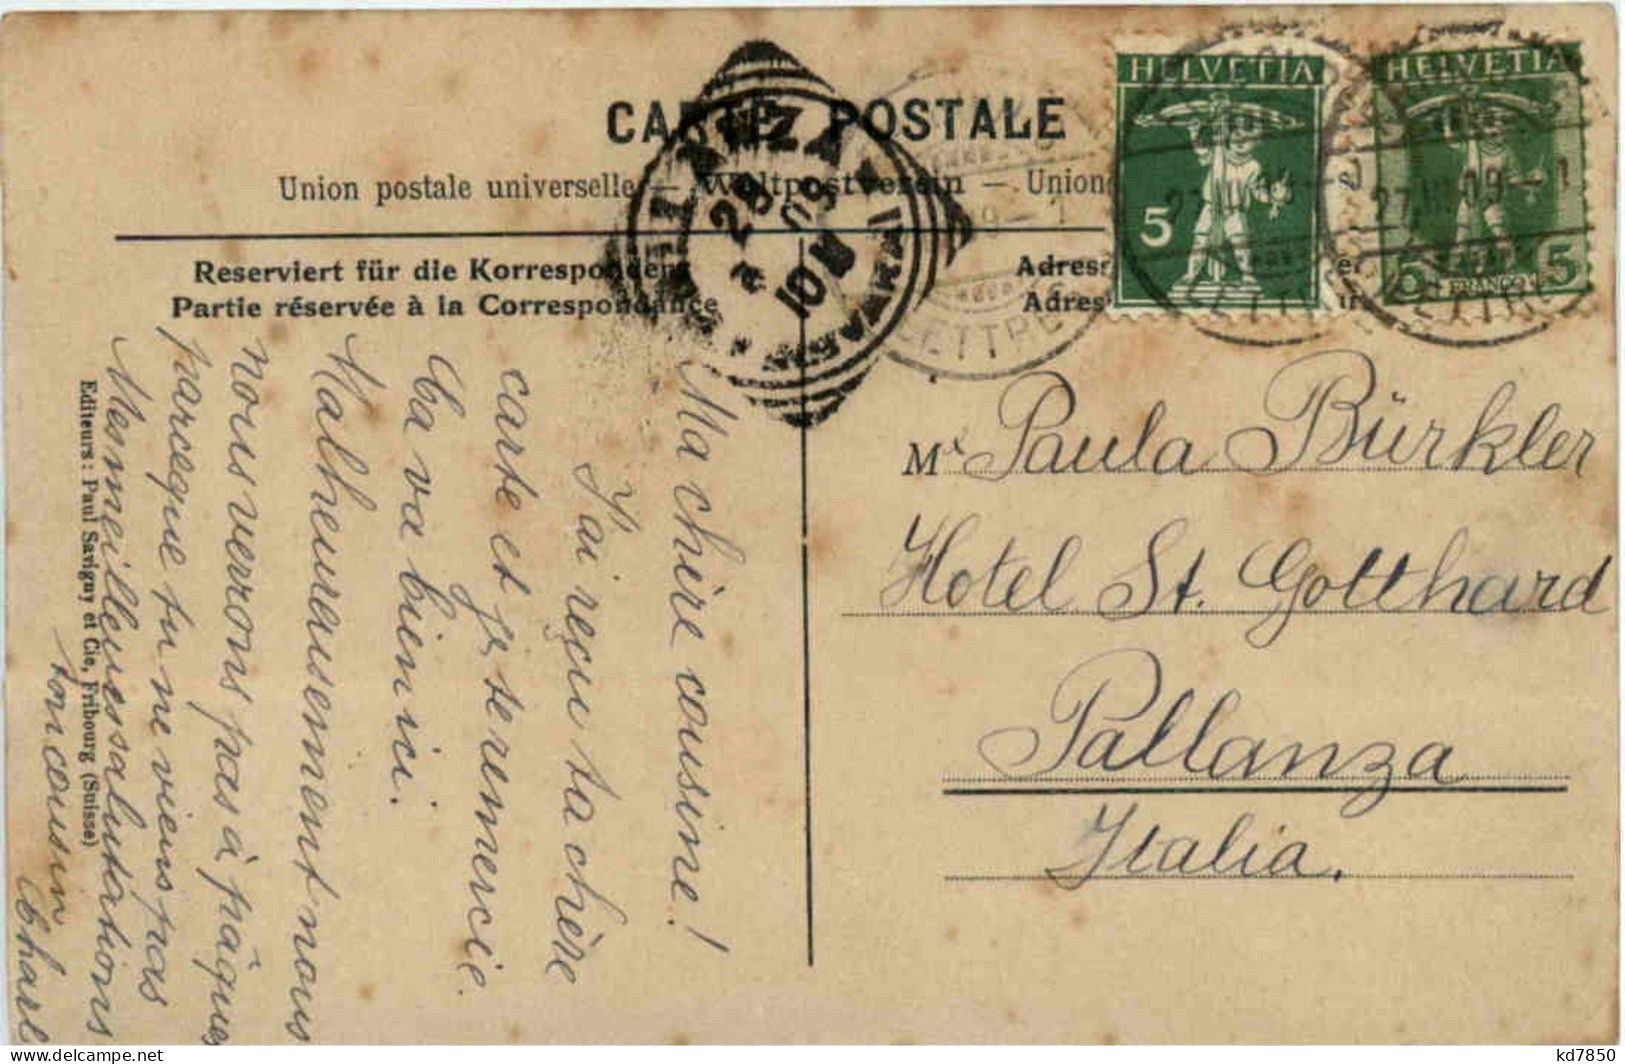 CARTE POSTALE
Union postale universelle – Weltpostverein – Union
Reserviert für die Korrespondenz
Partie réservée à la Correspondance
HELVETIA
5
HELVETIA
5 FRANCO 5
27.III.09–1
LETTRE
28 3 09
10
Ma chère cousine!
J'ai reçu ta chère
carte et je te remercie.
Ca va bien ici.
Malheureusement nous
nous verrons pas à pâques
parceque tu ne viens pas
Mes meilleures salutations
ton cousin
Charl
Editeurs: Paul Savigny et Cie, Fribourg (Suisse)
M. Paula Bürkler
Hotel St. Gotthard
Pallanza
Italia.
kd7850